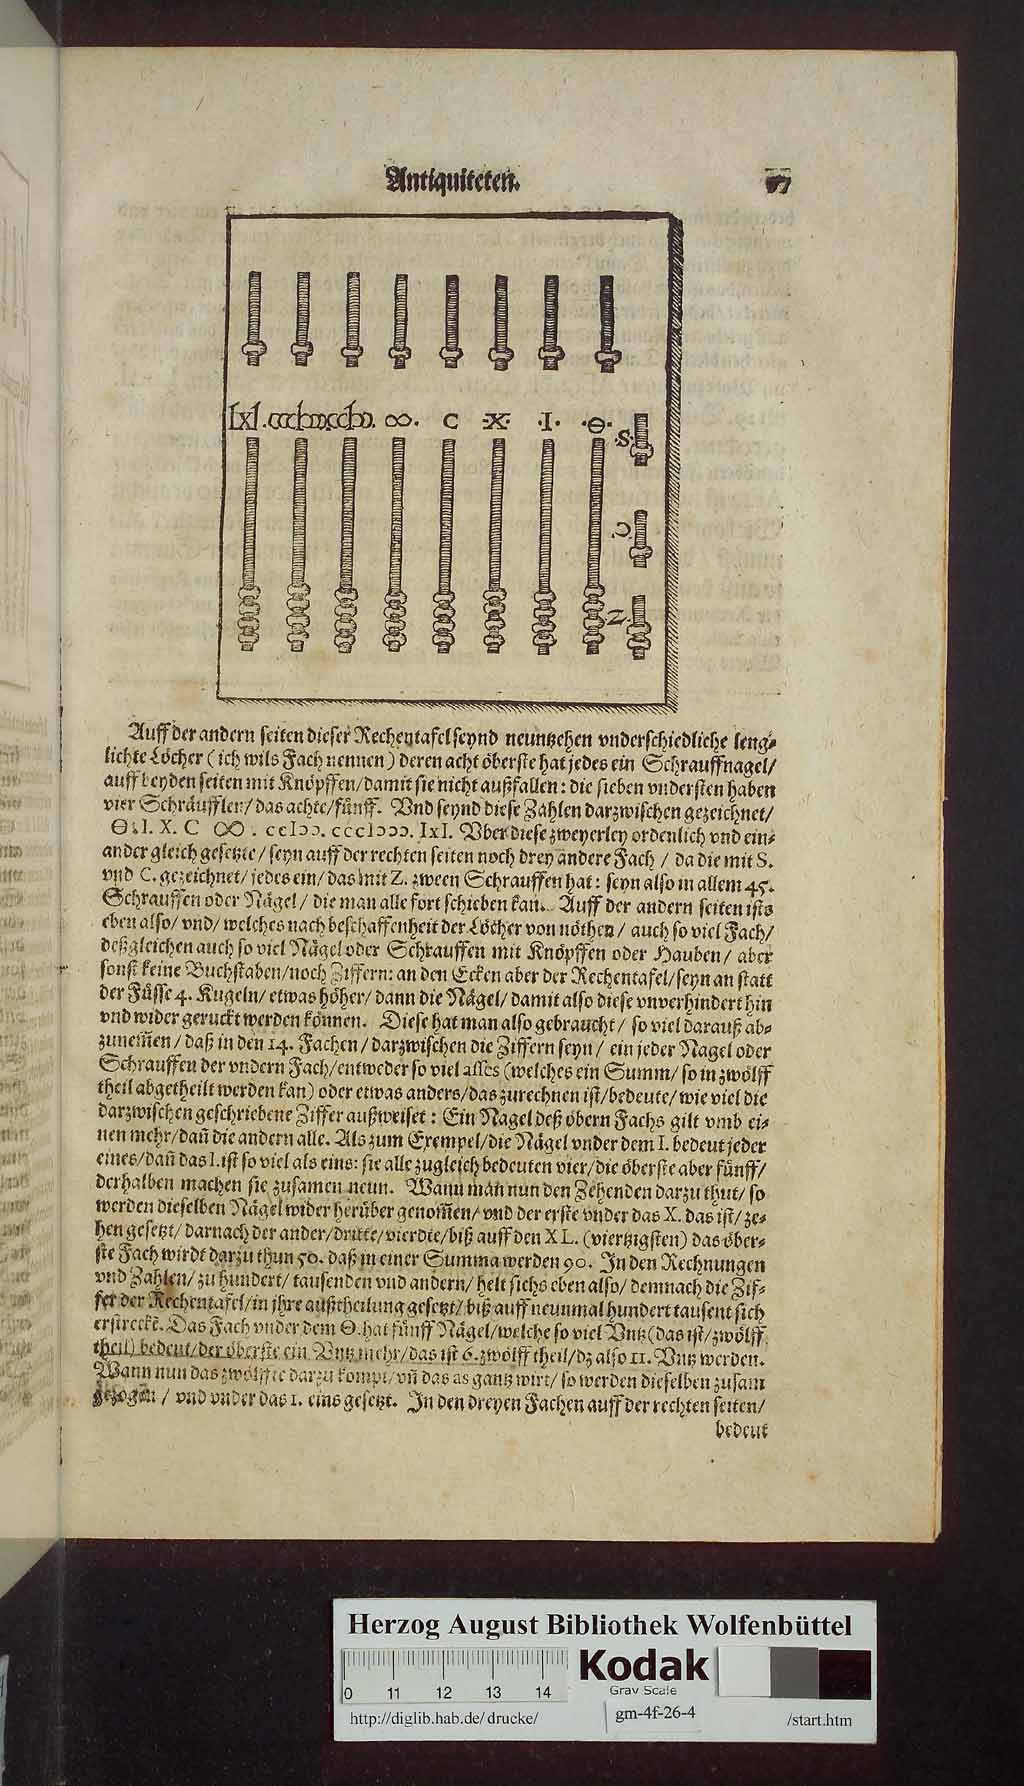 Antiquiteten. 97
|X|. ccclↃↃↃ. cclↃↃ. ∞. C ·X· ·I· ·Ө·
·S·
·Ɔ·
·Z·
Auff der andern seiten dieser Rechentafel seynd neuntzehen vnderschiedliche leng-
lichte Löcher (ich wils Fach nennen) deren acht öberste hat jedes ein Schrauffnagel/
auff beyden seiten mit Knöpffen/damit sie nicht außfallen: die sieben vndersten haben
vier Schräufflen/das achte/fünff. Vnd seynd diese Zahlen darzwischen gezeichnet/
Ө. I. X. C ∞. ccIↄↄ. cccIↄↄↄ. IxI. Vber diese zweyerley ordenlich vnd ein-
ander gleich gesetzte/seyn auff der rechten seiten noch drey andere Fach/da die mit S.
vnd C. gezeichnet/jedes ein/das mit Z. zween Schrauffen hat: seyn also in allem 45.
Schrauffen oder Nägel/die man alle fort schieben kan. Auff der andern seiten ists
eben also/vnd/welches nach beschaffenheit der Löcher von nöthen/auch so viel Fach/
deßgleichen auch so viel Nägel oder Schrauffen mit Knöpffen oder Hauben/aber
sonst keine Buchstaben/noch Ziffern: an den Ecken aber der Rechentafel/seyn an statt
der Füsse 4. Kugeln/etwas höher/dann die Nägel/damit also diese vnverhindert hin
vnd wider geruckt werden können. Diese hat man also gebraucht/so viel darauß ab-
zunem̃en/daß in den 14. Fachen/darzwischen die Ziffern seyn/ein jeder Nagel oder
Schrauffen der vndern Fach/entweder so viel asses (welches ein Summ/so in zwölff
theil abgetheilt werden kan) oder etwas anders/das zurechnen ist/bedeute/wie viel die
darzwischen geschriebene Ziffer außweiset: Ein Nagel deß obern Fachs gilt vmb ei-
nen mehr/dañ die andern alle. Als zum Exempel/die Nägel vnder dem I. bedeut jeder
eines/dañ das I. ist so viel als eins: sie alle zugleich bedeuten vier/die öberste aber fünff/
derhalben machen sie zusamen neun. Wann man nun den Zehenden darzu thut/so
werden dieselben Nägel wider herüber genom̃en/vnd der erste vnder das X. das ist/ze-
hen gesetzt/darnach der ander/dritte/vierdte/biß auff den XL. (viertzigsten) das öber-
ste Fach wirdt darzu thun 50. daß in einer Summa werden 90. In den Rechnungen
vnd Zahlen/zu hundert/tausenden vnd andern/helt sichs eben also/demnach die Zif-
fer der Rechentafel/in jhre außtheilung gesetzt/biß auff neunmal hundert tausent sich
erstreckt. Das Fach vnder dem Ө. hat fünff Nägel/welche so viel Vntz (das ist/zwölff
theil) bedeut/der öberste ein Vntz mehr/das ist 6. zwölff theil/dz also 11. Vntz werden.
Wann nun das zwölffte darzu kompt/vñ das as gantz wirt/so werden dieselben zusam
gezogen/vnd vnder das I. eins gesetzt. In den dreyen Fachen auff der rechten seiten/
bedeut
Herzog August Bibliothek Wolfenbüttel
0 11 12 13 14
Kodak
Gray Scale
http://diglib.hab.de/drucke/ gm-4f-26-4 /start.htm